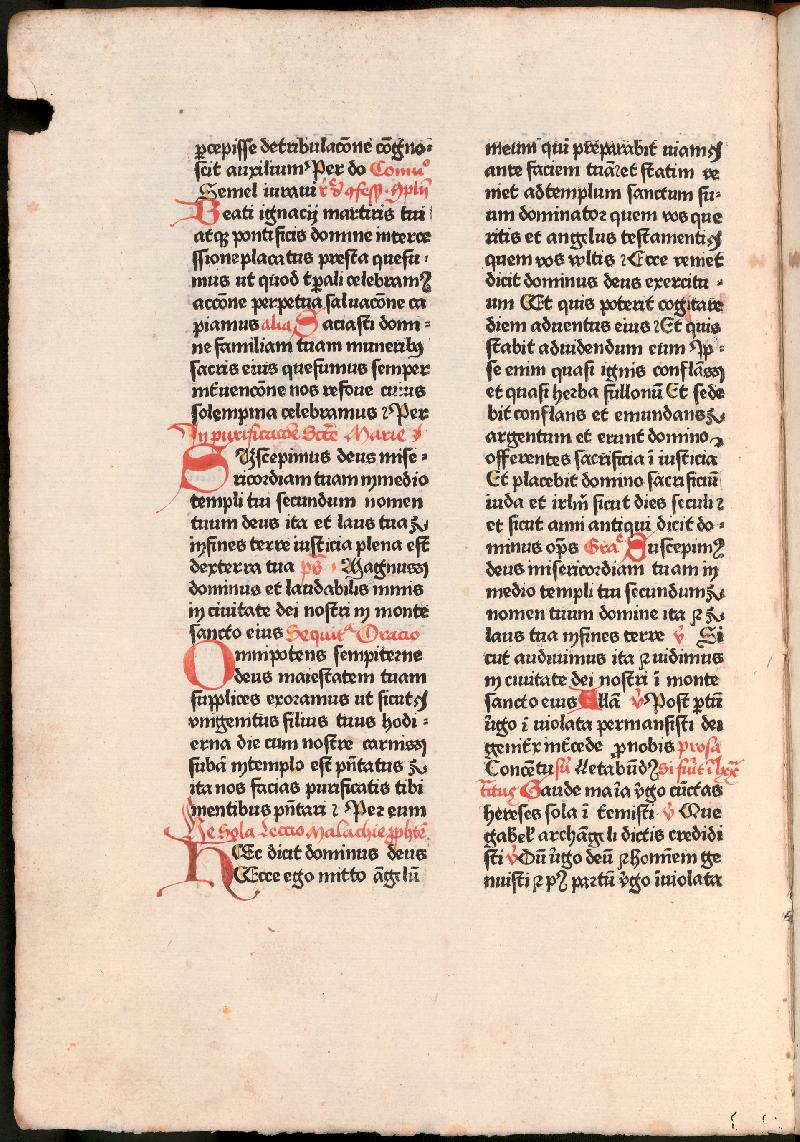 ꝑcepisse de tribulacōne cōgno⸗
scit auxilium Per do Comūo
Semel iuravi
Beati ignacij martiris tui
atqꝫ pontificis domine interce
ssione placatus presta quesu⸗
mus ut quod tꝑali celebramꝰ
accōne perpetua salvacōne ca
piamus alia Saciasti domi⸗
ne familiam tuam muneribꝰ
sacris eius quesumus semper
īnt̄uencōne nos refove cuius
solempnia celebramus ⁊ Per
In purificacōe Sctē Marie
SUscepimus deus mise⸗
ricordiam tuam in medio
templi tui secundum nomen
tuum deus ita et laus tua
in fines terre iusticia plena est
dexterra tua ps̄ Magnus
dominus et laudabilis nimis
in civitate dei nostri in monte
sancto eius Sequit᷑ Oracio
Omnipotens sempiterne
deus maiestatem tuam
supplices exoramus ut sicut
vnigenitus filius tuus hodi⸗
erna die cum nostre carnis
subā in templo est p̄n̄tatus
ita nos facias purificatis tibi
mentibus p̄n̄tari ⁊ Per eum
Ne Sola Leccio Malachie ꝓphē
HEc dicit dominus deus
Ecce ego mitto āgelū
meum qui preparabit viam
ante faciem tuā et statim ve
niet ad templum sanctum su⸗
um dominator quem vos que
ritis et angelus testamenti
quem vos vltis ⁊ Ecce veniet
dicit dominus deus exercitu⸗
um Et quis poterit cogitare
diem adventus eius ⁊ Et quis
stabit ad videndum eum Ip⸗
se enim quasi ignis conflās
et quasi herba fullonū Et sede
bit conflans et emundans
argentum et erunt domino
offerentes sacrificia ī iusticia
Et placebit domino sacrificiū
iuda et irlm̄ sicut dies seculi ⁊
et sicut anni antiqui dicit do⸗
minus op̄s Gra᷑ Suscepimꝰ
deus misericordiam tuam in
medio templi tui secundum
nomen tuum domine ita ⁊
laus tua in fines terre v̄ Si
cut audivimus ita ⁊ vidimus
in civitate dei nostri ī monte
sancto eius Allā v̄ Post ꝑtū
v̄go ī violata permansisti dei
genit̄x int̄cede ꝓ nobis prosa
Concētu sū Letabūdꝰ Si fūit ī lxx
Tractus Gaude maīa v̄go cūctas
hereses sola ī t̄emisti v̄ Que
gabel᷑ archāgeli dictis credidi
sti v̄ Dū v̄go deū ⁊ hominem ge
nuisti ⁊ pꝰ partū v̄go īviolata